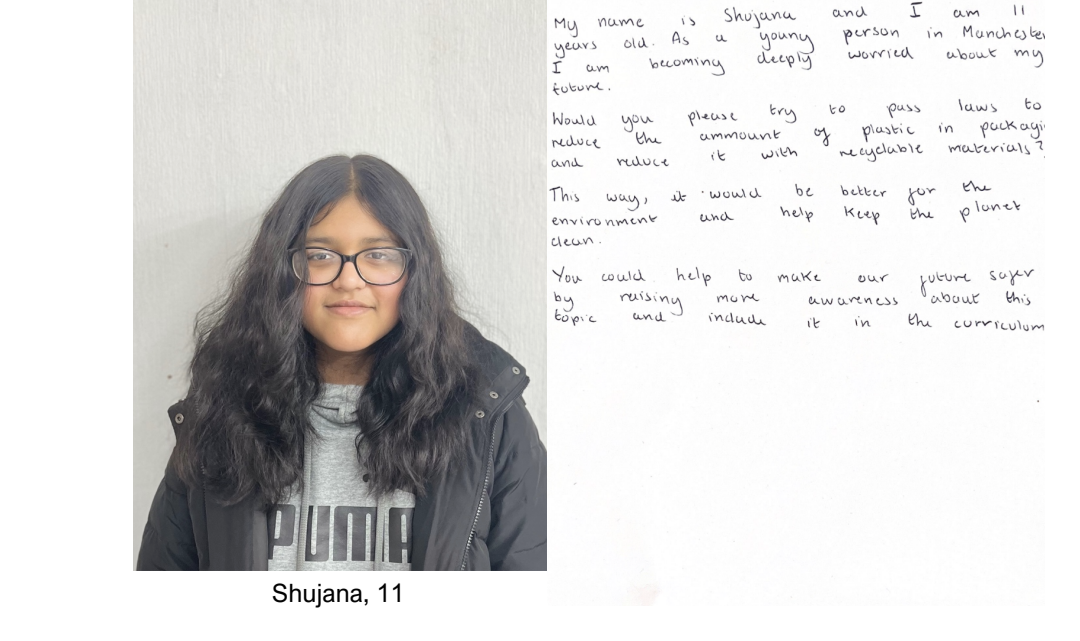 My name is Shujana and I am 11
years old. As a young person in Manchester
I am becoming deeply worried about my
future.
Would you please try to pass laws to
reduce the ammount of plastic in packagi
and reduce it with recyclable materials?
This way, it would be better for the
environment and help keep the planet
clean.
You could help to make our future safer
by raising more awareness about this
topic and include it in the curriculum
PUMA
Shujana, 11